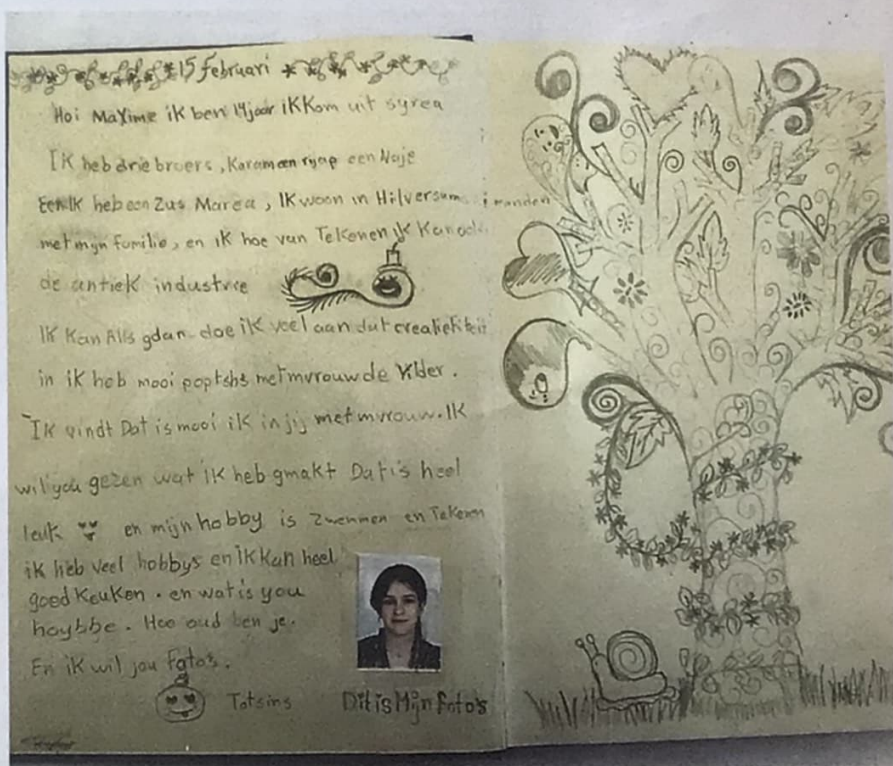 15 Februari
Hoi Maxime ik ben 14 jaar ik kom uit syrea
Ik heb drie broers, Karam en een Naje
Een Ik heb een Zus Marea, Ik woon in Hilversum
met mijn familie, en ik hoe van Tekenen ik kan
de antiek industrie
Ik kan Alls gdan doe ik veel aan dat
in ik heb mooi poptshs met mvrouw de Vilder.
Ik vindt Dat is mooi ik in jij met mvrouw. Ik
wil you gezen wat ik heb gmakt Dat is heel
leuk en mijn hobby is Zwemmen en Tekenen
ik heb veel hobbys en ik kan heel
good Keuken. en wat is you
hoybbe. Hoe oud ben je.
En ik wil jou Foto's.
Totsins
Dit is Mijn foto's